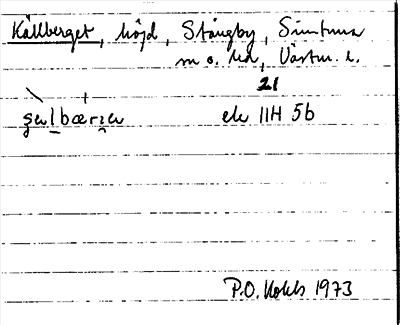 Källberget, höjd, Stångby, Simtuna
sn o. hd, Västm. l.
21
ek 11H 5b
P.O. 1973